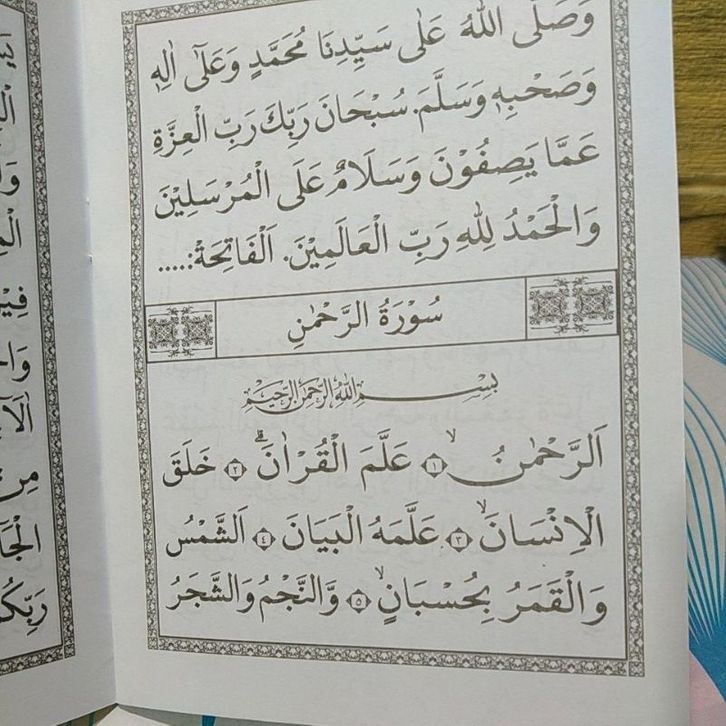 وَصَلَّى اللهُ عَلَى سَيِّدِنَا مُحَمَّدٍ وَعَلَى اٰلِهٖ
وَصَحْبِهٖ وَسَلَّمَ. سُبْحَانَ رَبِّكَ رَبِّ الْعِزَّةِ
عَمَّا يَصِفُوْنَ وَسَلَامٌ عَلَى الْمُرْسَلِيْنَ
وَالْحَمْدُ لِلّٰهِ رَبِّ الْعَالَمِيْنَ. اَلْفَاتِحَةْ:.....
سُوْرَةُ الرَّحْمٰنِ
بِسْمِ اللهِ الرَّحْمٰنِ الرَّحِيْمِ
اَلرَّحْمٰنُۙ ﴿١﴾ عَلَّمَ الْقُرْاٰنَۗ ﴿٢﴾ خَلَقَ
الْاِنْسَانَۙ ﴿٣﴾ عَلَّمَهُ الْبَيَانَ ﴿٤﴾ اَلشَّمْسُ
وَالْقَمَرُ بِحُسْبَانٍۙ ﴿٥﴾ وَّالنَّجْمُ وَالشَّجَرُ
فِيْ
مِنْ